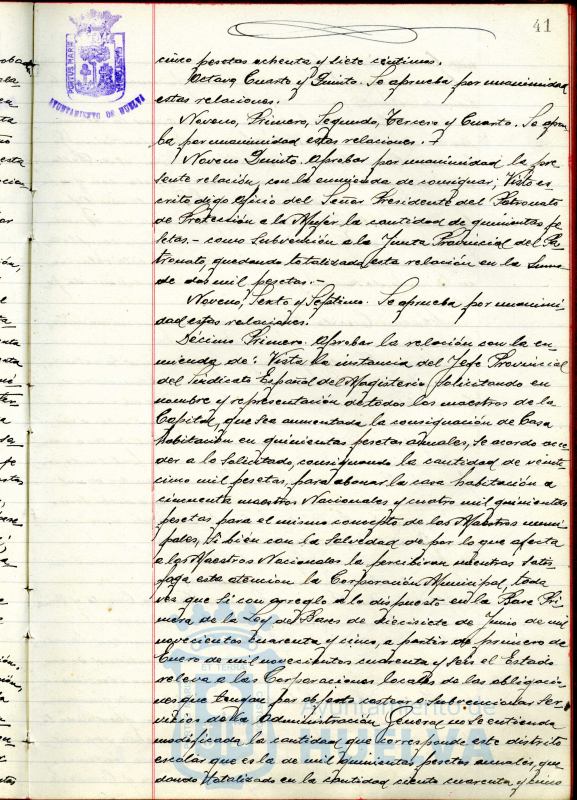 41
PORTUS MARIS
AYUNTAMIENTO DE HUELVA
cinco pesetas ochenta y siete céntimos.
Octavo, Cuarto y Quinto. Se aprueba por unanimidad
estas relaciones.
Noveno, Primero, Segundo, Tercero y Cuarto. Se aprue-
ba por unanimidad estas relaciones.-
Noveno Quinto. Aprobar por unanimidad la pre-
sente relación, con la enmienda de consignar; Visto es-
crito digo Oficio del Señor Presidente del Patronato
de Protección a la Mujer la cantidad de quinientas pe-
setas.- como Subvención a la Junta Provincial del Pa-
tronato, quedando totalizada esta relación en la suma
de dos mil pesetas.-
Noveno, Sexto y Séptimo. Se aprueba por unanimi-
dad estas relaciones.
Décimo Primero. Aprobar la relación con la en-
mienda de: Vista la instancia del Jefe Provincial
del Sindicato Español del Magisterio, solicitando en
nombre y representación de todos los maestros de la
Capital, que sea aumentada la consignación de Casa
habitación en quinientas pesetas anuales, se acordo acce-
der a lo solicitado, consignando la cantidad de veinte
cinco mil pesetas, para abonar la casa habitación a
cincuenta maestros Nacionales y cuatro mil quinientas
pesetas para el mismo concepto de los Maestros muni-
pales, si bien con la salvedad de por lo que afecta
a los Maestros Nacionales la percibiran mientras satis-
faga esta atencion la Corporación Municipal, toda
vez que si con arreglo a lo dispuesto en la Base Pri-
mera de la Ley de Bases de diecisiete de Junio de mil
novecientos cuarenta y cinco, a partir de primero de
Enero de mil novecientos cuarenta y seis el Estado
releva a las Corporaciones locales de las obligacio-
nes que tengan por objeto costear o subvencionar ser-
vicios de la Administración General no se entienda
modificada la cantidad que corresponde este distrito
escolar que es la de mil quinientas pesetas anuales, que-
dando totalizado en la cantidad ciento cuarenta y cinco
Ayuntamiento de
HUELVA